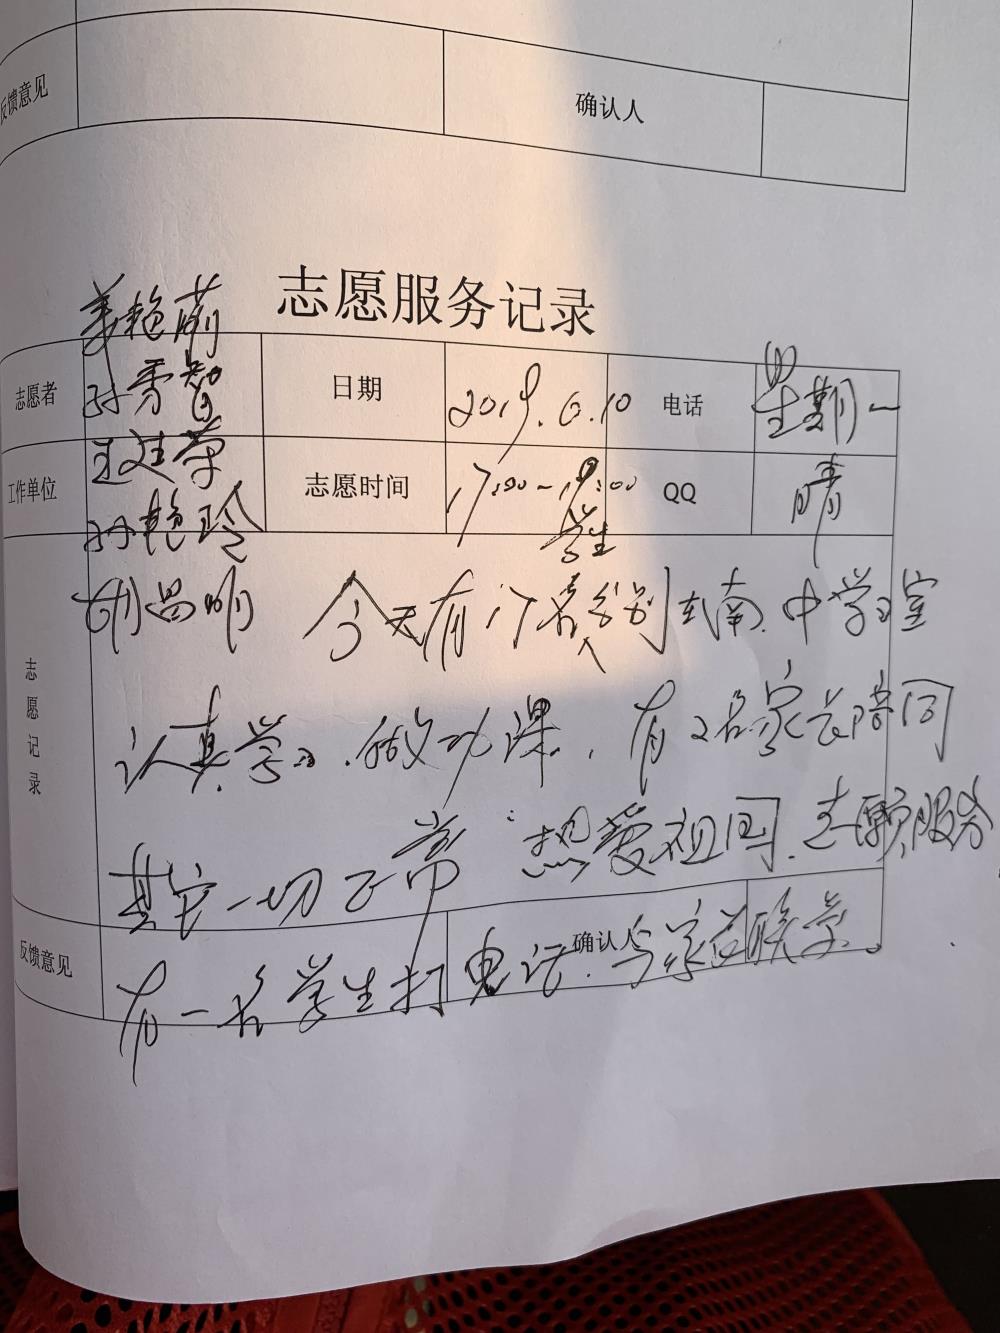 反馈意见 确认人
志愿服务记录
姜艳萠
志愿者 孙秀智 日期 2019.6.10 电话 星期一
王廷荣
工作单位 志愿时间 17:00~19:00 QQ 晴
孙艳玲
学生
胡昌明 今天有17名分别在南.中学习室
志愿记录
认真学习.做功课.有2名家长陪同
其它一切正常 热爱祖国.志愿服务
反馈意见 确认人
有一名学生打电话.与家长联系.